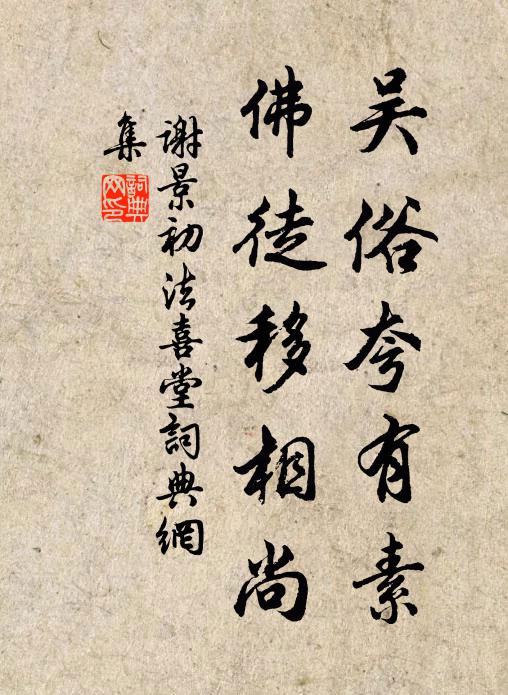 吴俗夸有素
佛徒移相尚
谢景初法喜堂詞典網
集
詞典
网印